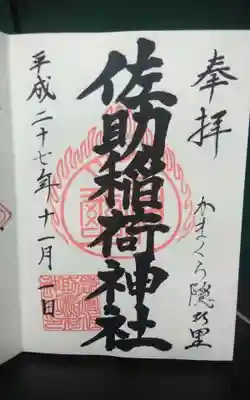 奉拝
かまくら隠れ里
佐助稲荷神社
平成二十七年十一月一日